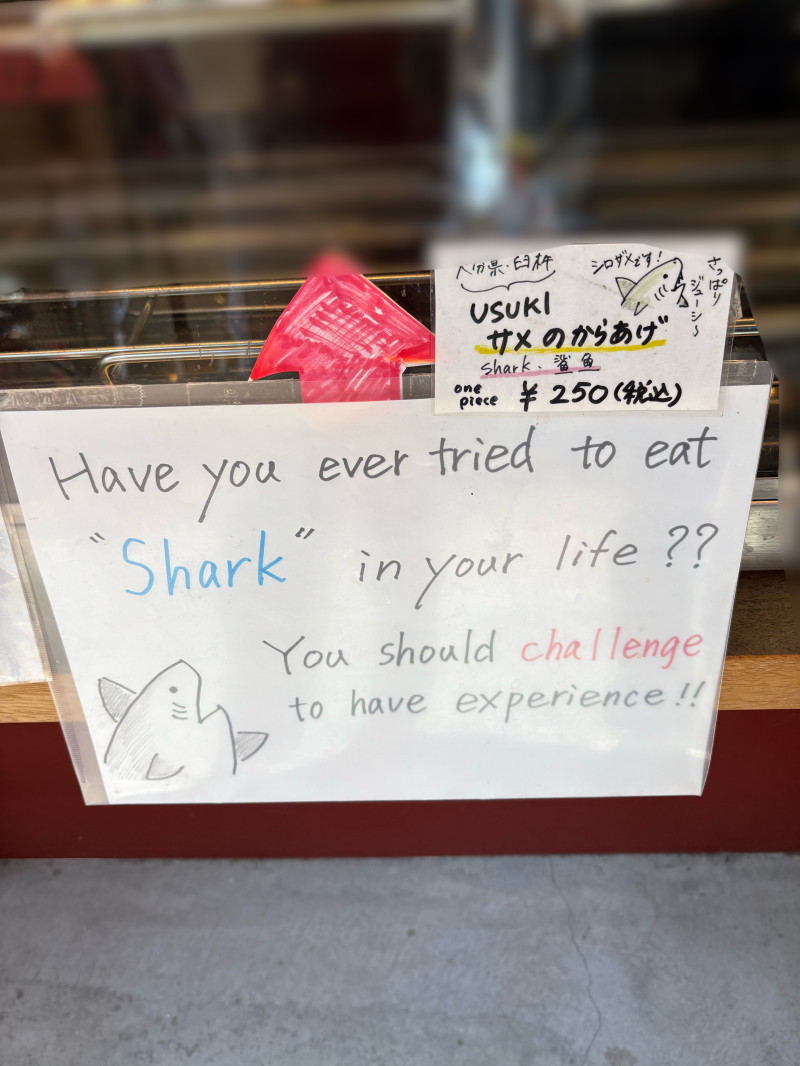 大分県・臼杵
シロザメです!
さっぱり
ジューシ～
USUKI
サメのからあげ
shark、鲨魚
one piece ¥250(税込)
Have you ever tried to eat
"Shark" in your life ??
You should challenge
to have experience!!